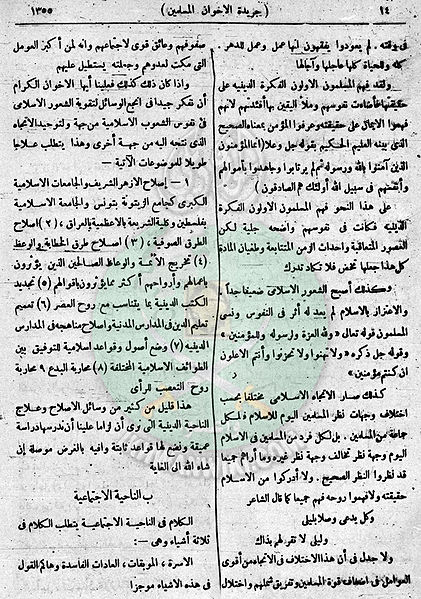 ١٤
( جريدة الاخوان المسلمين )
١٣٥٥
فى وقته . لم يعودوا يفقهون لها عمل وعمل للدهر .
كله والحياة كلها عاجلها وآجلها
ولقد فهم المسلمون الاولون الفكرة الدينيه على
حقيقتها فأضاءت نفوسهم وملأ اليقين بها أفئدتهم لانهم
فهموا الايمان على حقيقته وعرفوا المؤمن بمعناه الصحيح
الذى بينه العليم الحكيم بقوله جل وعلا (انما المؤمنون
الذين آمنوا بالله ورسوله ثم لم يرتابوا وجاهدوا بأموالهم
وأنفسهم فى سبيل الله أولئك هم الصادقون )
على هذا النحو فهم المسلمون الاولون الفكرة
الدينيه فكانت فى نفوسهم واضحه جلية لكن
العصور المتعاقبة واحداث الزمن المتتابعة وطغيان المادة
كل هذا جعلها تغمض فلا تكاد تدرك
وكذلك أصبح الشعور الاسلامى ضعيفا جداً .
والاعتزاز بالاسلام لم يعد له أثر فى النفوس ونسى
المسلمون قوله تعالى « ولله العزة ولرسوله وللمؤمنين »
وقوله جل ذكره « ولا تهنوا ولا تحزنوا وأنتم الاعلون
ان كنتم مؤمنين »
كذلك صار الاتجاه الاسلامى مختلفا بحسب
اختلاف وجهات نظر المسلمين اليوم للاسلام فلكل
جماعة من المسلمين . بل لكل فرد من المسلمين فى الاسلام
اليوم وجهة نظر تخالف وجهة نظر غيره وما أراهم جميعا
قد نظروا النظر الصحيح . ولا أدركوا من الاسلام
حقيقته ولا فهموا روحه فهم جميعا كما قال الشاعر
وكل يدعى وصلا بليلى
وليلى لا تقر لهم بذاك
ولا جدل فى أن هذا الاختلاف فى الاتجاه من أقوى
العوامل فى اضعاف قوة المسلمين وتفريق شملهم واختلال
صفوفهم وعائق قوى لاجتماعهم وانه لمن أكبر العوامل
التى مكنت لعدوهم وجعلته يستطيل عليهم
واذا كان ذلك كذلك فعلينا أيها الاخوان الكرام
أن نفكر جيدا فى أنجع الوسائل لتقوية الشعور الاسلامى
فى نفوس الشعوب الاسلامية من جهة ولتوحيد الاتجاه
الذى نتجه اليه من جهة أخرى وهذا يتطلب علاجا
طويلا للموضوعات الآتية —
١ — إصلاح الازهر الشريف والجامعات الاسلامية
الكبرى كجامع الزيتونة بتونس والجامعة الاسلامية
بفلسطين وكلية الشريعة بالاعظمية بالعراق ، (٢) اصلاح
الطرق الصوفية ، (٣) اصلاح طرق الخطابة والوعظ
(٤) تخريج الأئمة والوعاظ الصالحين الذين يؤثرون
بأعمالهم وأرواحهم أكثر مما يؤثرون بأقوالهم (٥) تجديد
الكتب الدينية بما يتناسب مع روح العصر (٦) تعميم
تعليم الدين فى المدارس المدنية واصلاح مناهجه فى المدارس
الدينيه (٧) وضع أصول وقواعد اسلامية للتوفيق بين
الطوائف الاسلامية المختلفة (٨) محاربة البدع ٩ محاربة
روح التعصب للرأى
هذا قليل من كثير من وسائل الاصلاح وعلاج
الناحية الدينية التى أرى لزاما علينا أن ندرسها دراسة
عميقة ونضع لها قواعد ثابتة وافيه بالغرض موصلة إن
شاء الله الى الغاية
ب الناحية الاجتماعية
الكلام فى الناحية الاجتماعية يتطلب الكلام فى
ثلاثة أشياء وهى —:
الاسرة ، الموبقات ، العادات الفاسدة وهاكم القول
فى هذه الاشياء موجزا